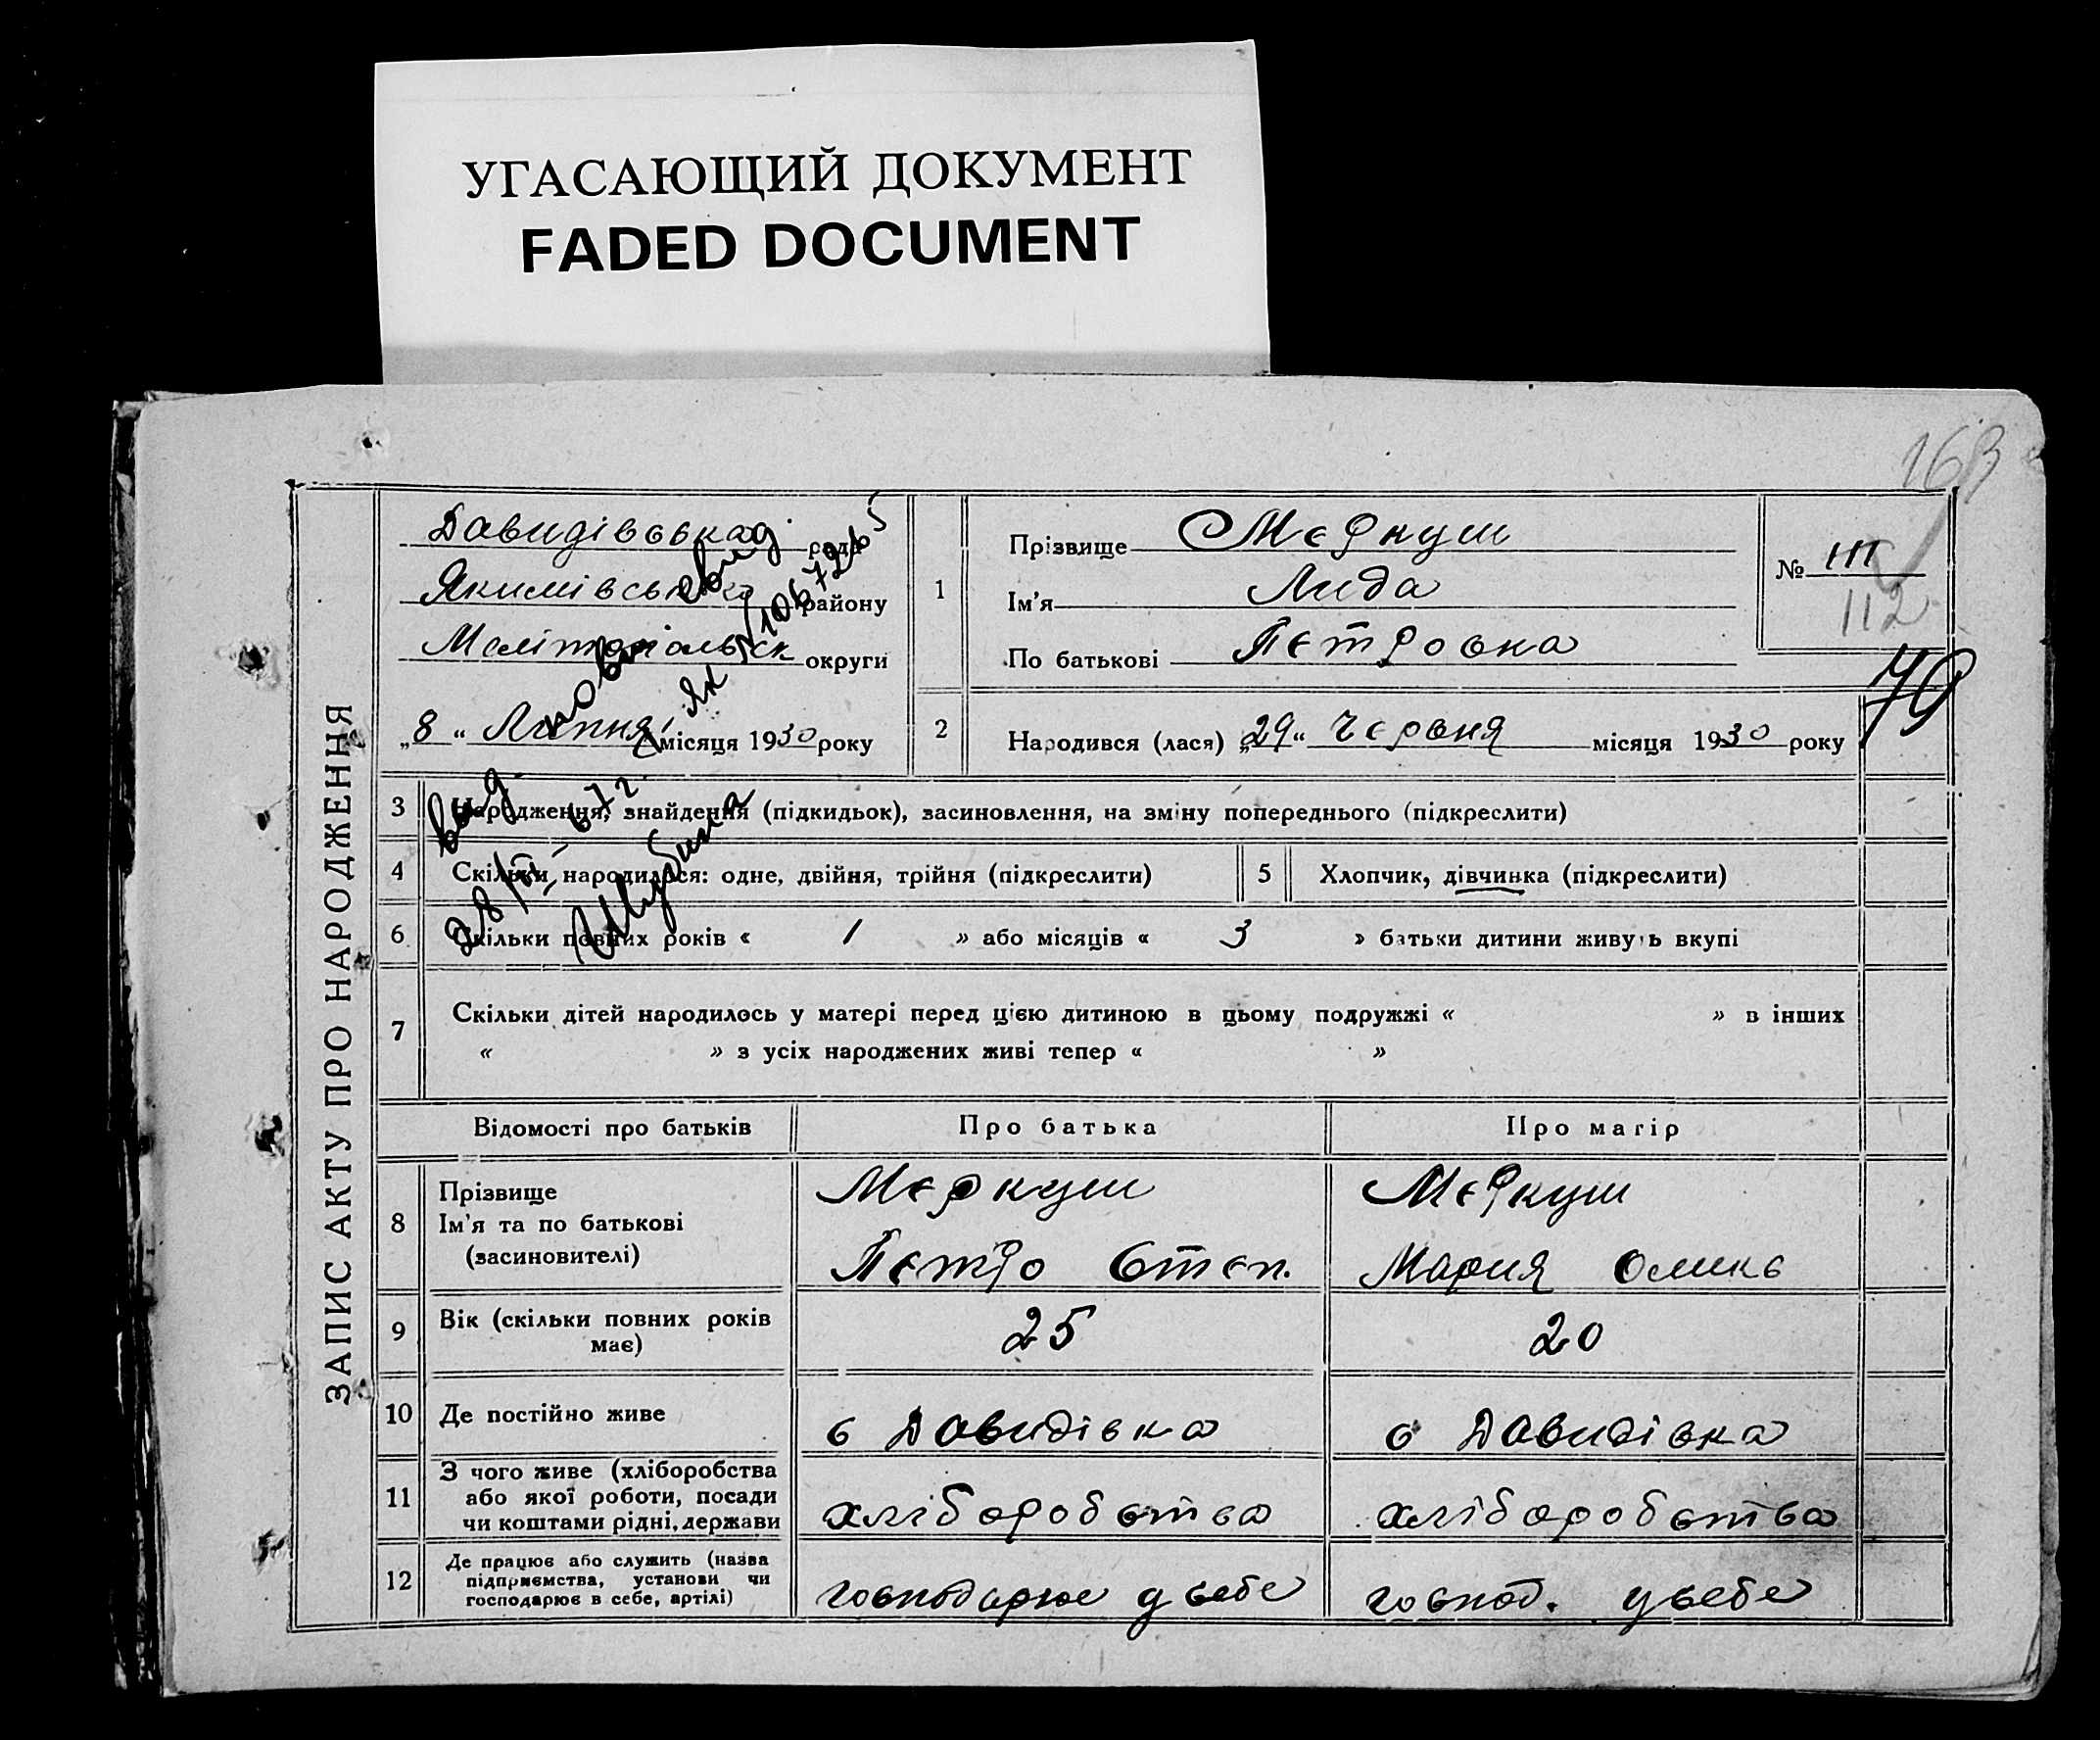 УГАСАЮЩИЙ ДОКУМЕНТ
FADED DOCUMENT
163
ЗАПИС АКТУ ПРО НАРОДЖЕННЯ
Давидівська рада
Якимівськ району
Мелітопольськ округи
„8“ Липня місяця 1930 року
1
Прізвище Меркуш
Ім'я Лида
По батькові Петровна
№ 111
112
79
2
Народився (лася) „29“ Червня місяця 1930 року
Выд. повт свид
ЯК № 1067245
28/VI-672
Шубина
3 Народження, знайдення (підкидьок), засиновлення, на зміну попереднього (підкреслити)
4 Скільки народилося: одне, двійня, трійня (підкреслити) 5 Хлопчик, дівчинка (підкреслити)
6 Скільки повних років « 1 » або місяців « 3 » батьки дитини живуть вкупі
7 Скільки дітей народилось у матері перед цією дитиною в цьому подружжі « » в інших
« » з усіх народжених живі тепер « »
Відомості про батьків Про батька Про матір
8
Прізвище Меркуш Меркуш
Ім'я та по батькові
(засиновителі) Петро Степ. Мария
9 Вік (скільки повних років
має) 25 20
10 Де постійно живе с Давидівка с Давидівка
11 З чого живе (хліборобства
або якої роботи, посади
чи коштами рідні, держави хліборобства хліборобства
12 Де працює або служить (назва
підприємства, установи чи
господарює в себе, артілі) господарює у себе господ. у себе